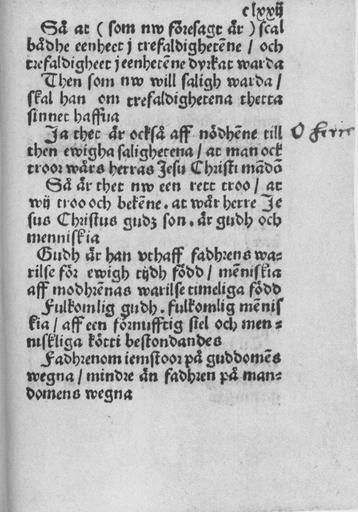 clxxij
Så at ( som nwföresagt är ) scal
bådhe eenheet j trefaldighetēne / och
trefaldigheet j eenhetēne dyrkat warda
Then som nw will saligh warda /
skal han om trefaldighetena thetta
sinnet haffua
Ja thet är också aff nödhēne till
then ewigha salighetena / at man ock
troor wårs herras Jesu Christi mādō
Så är thet nw een rett troo / at
wij troo och bekēne . at wår herre Je
sus Christus gudz son . är gudh och
menniskia
Gudh är han vthaff fadhrens wa⸗
rilse för ewigh tijdh född / mēniskia
aff modhrēnas warilse timeliga född
Fulkomlig gudh . fulkomlig mēnis
kia / aff een förnufftig siel och men⸗
niskliga kötti bestondandes
Fadhrenom iemstoor på guddomēs
wegna / mindre än fadhren på man⸗
domens wegna